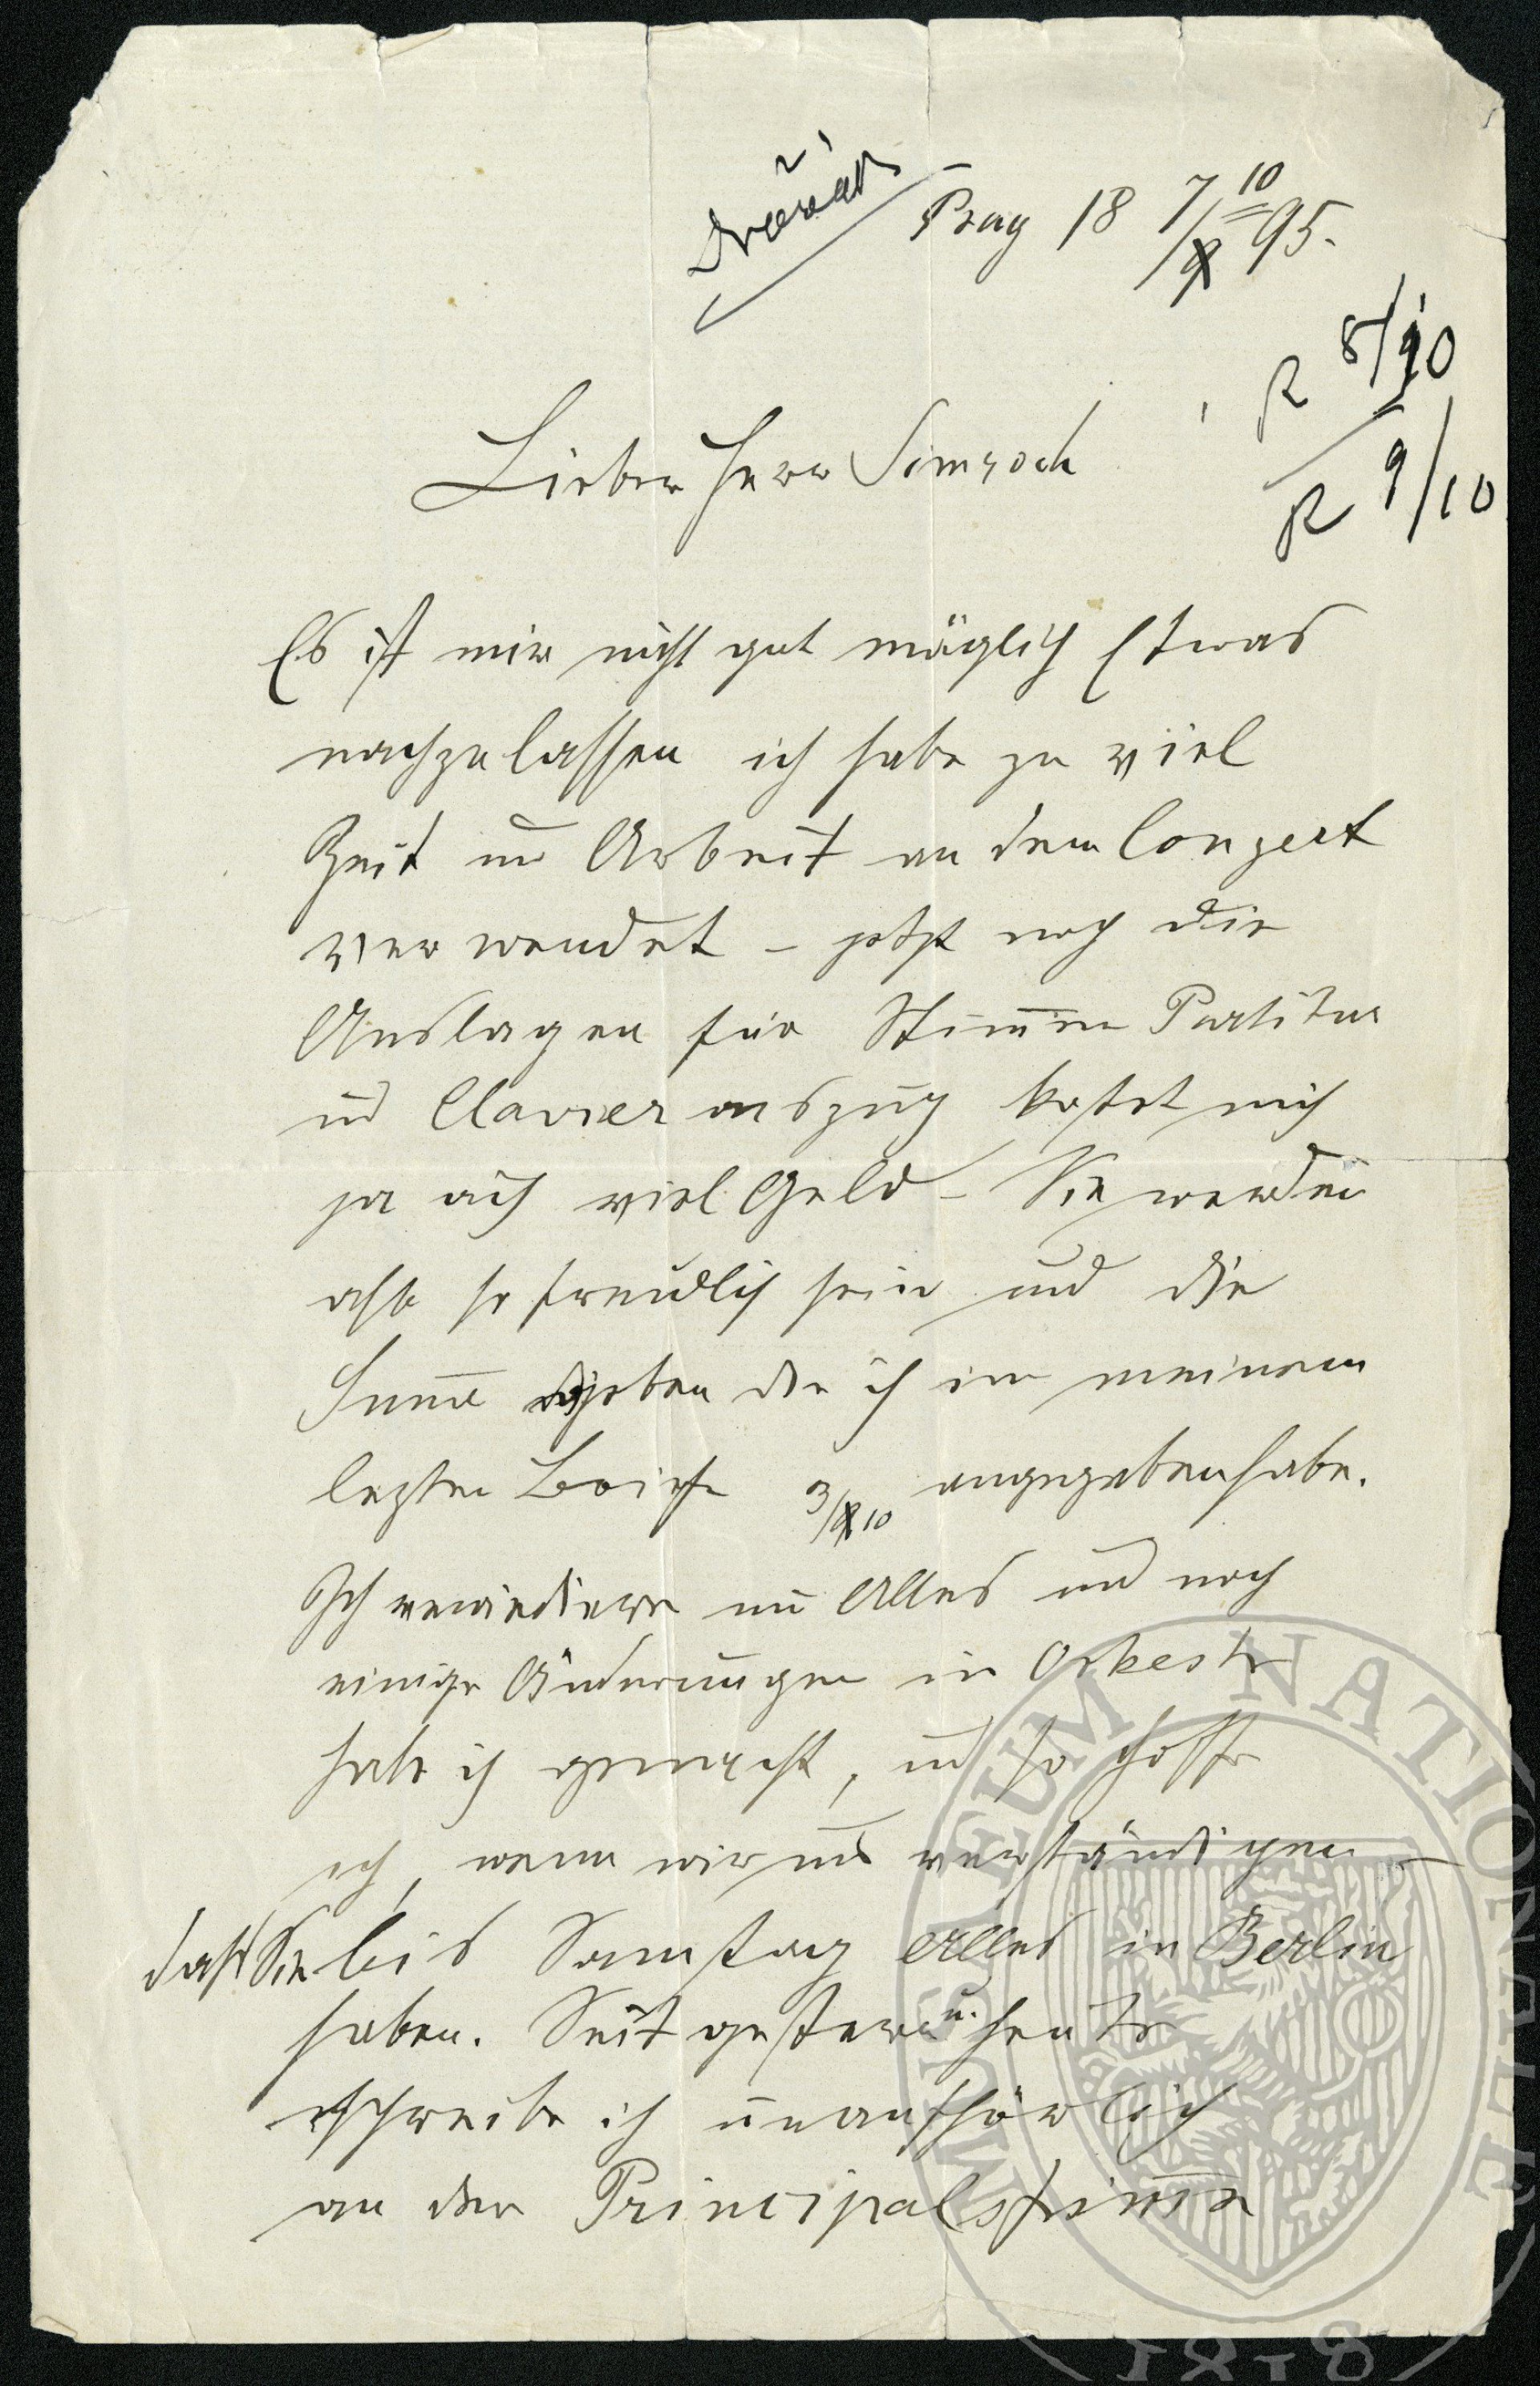 Dvořák
Prag 18 7/10 95.
R 8/10
R 9/10
Lieber Herr Simrock
Es ist mir nicht gut möglich Etwas
nachzulassen ich habe zu viel
Zeit und Arbeit an dem Conzert
verwendet – jetzt noch die
Auslagen für Stimmen Partitur
und Clavierauszug kostet mich
ja auch viel Geld – Sie werden
also so freundlich sein und die
Summe geben die ich in meinem
lezten Briefe 3/10 angegeben habe.
Ich revidiere nun Alles und noch
einige Änderungen in Orkester
habe ich gemacht, und so hoffe
ich, wenn wir uns verständigen –
daß Sie bis Samstag Alles in Berlin
haben. Seit gestern u. heute
schreibe ich unaufhörlich
an der Principalstimme
MUSAEUM NATIONALE
1818